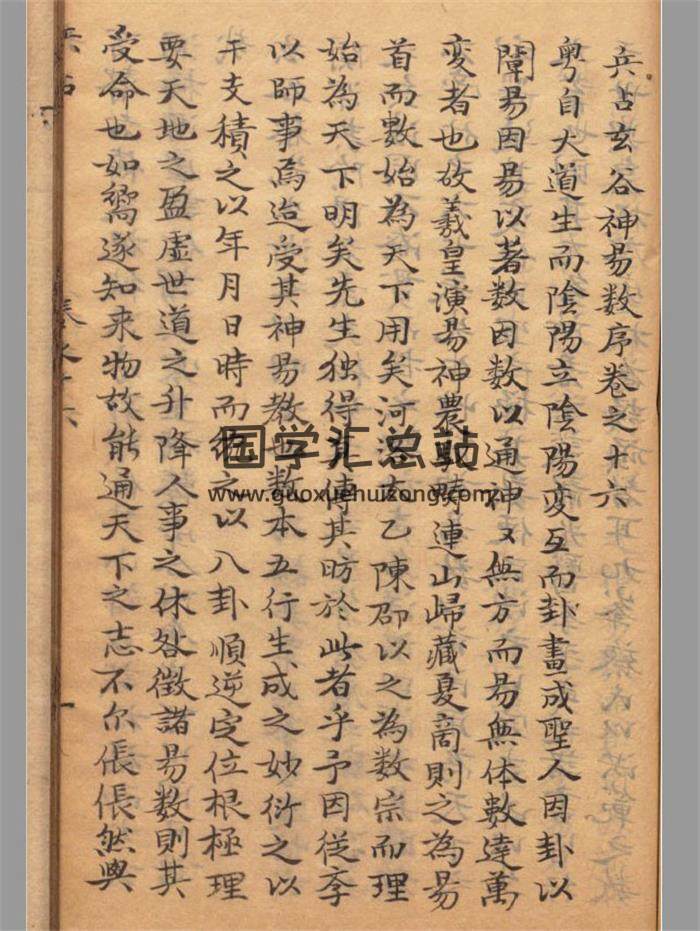 兵占玄谷神易數序卷之十六
粤自大道生而陰陽立陰陽变互而卦畫成聖人因卦以
闡易因易以著数因数以通神又無方而易無体數達萬
变者也故羲皇演易神農疇連山歸藏夏商則之為易
首而數始為天下用矣河洛太乙陳邵以之為数宗而理
始為天下明矣先生独得其傳其昉於此者乎予因從李
以師事焉迨受其神易教也数本五行生成之妙衍之以
干支積之以年月日時而之以八卦順逆定位根極理
要天地之盈虚世道之升降人事之休咎徵諸易數則其
受命也如嚮遂知来物故能通天下之志不尔倀倀然與
兵占 卷之十六 一
国学汇总站
www.guoxuehuizong.com